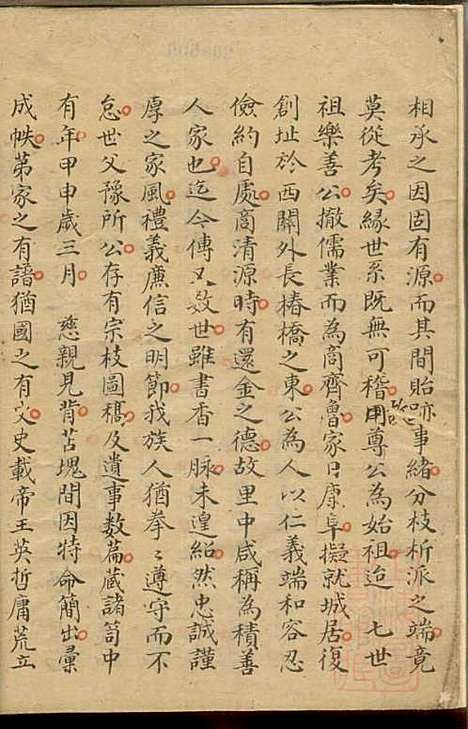 相承之因固有源而其間貽跡事緒分枝析派之端竟
莫從考矣緣世系既無可稽用尊公為始祖迨 七世
祖樂善公撤儒業而為商齊魯家日康阜擬就城居復
創址於西關外長椿橋之東公為人以仁義端和容忍
儉約自處商清源時有還金之德故里中咸稱為積善
人家也迄今傳又數世雖書香一脉未遑紹然忠誠謹
厚之家風禮義廉信之明節我族人猶拳〻遵守而不
怠世父豫所公存有宗枝圖稿及遺事数篇蔵諸笥中
有年甲申歲三月 慈親見背苫塊間因特命簡出彙
成帙第家之有譜猶國之有史史載帝王英哲庸荒立